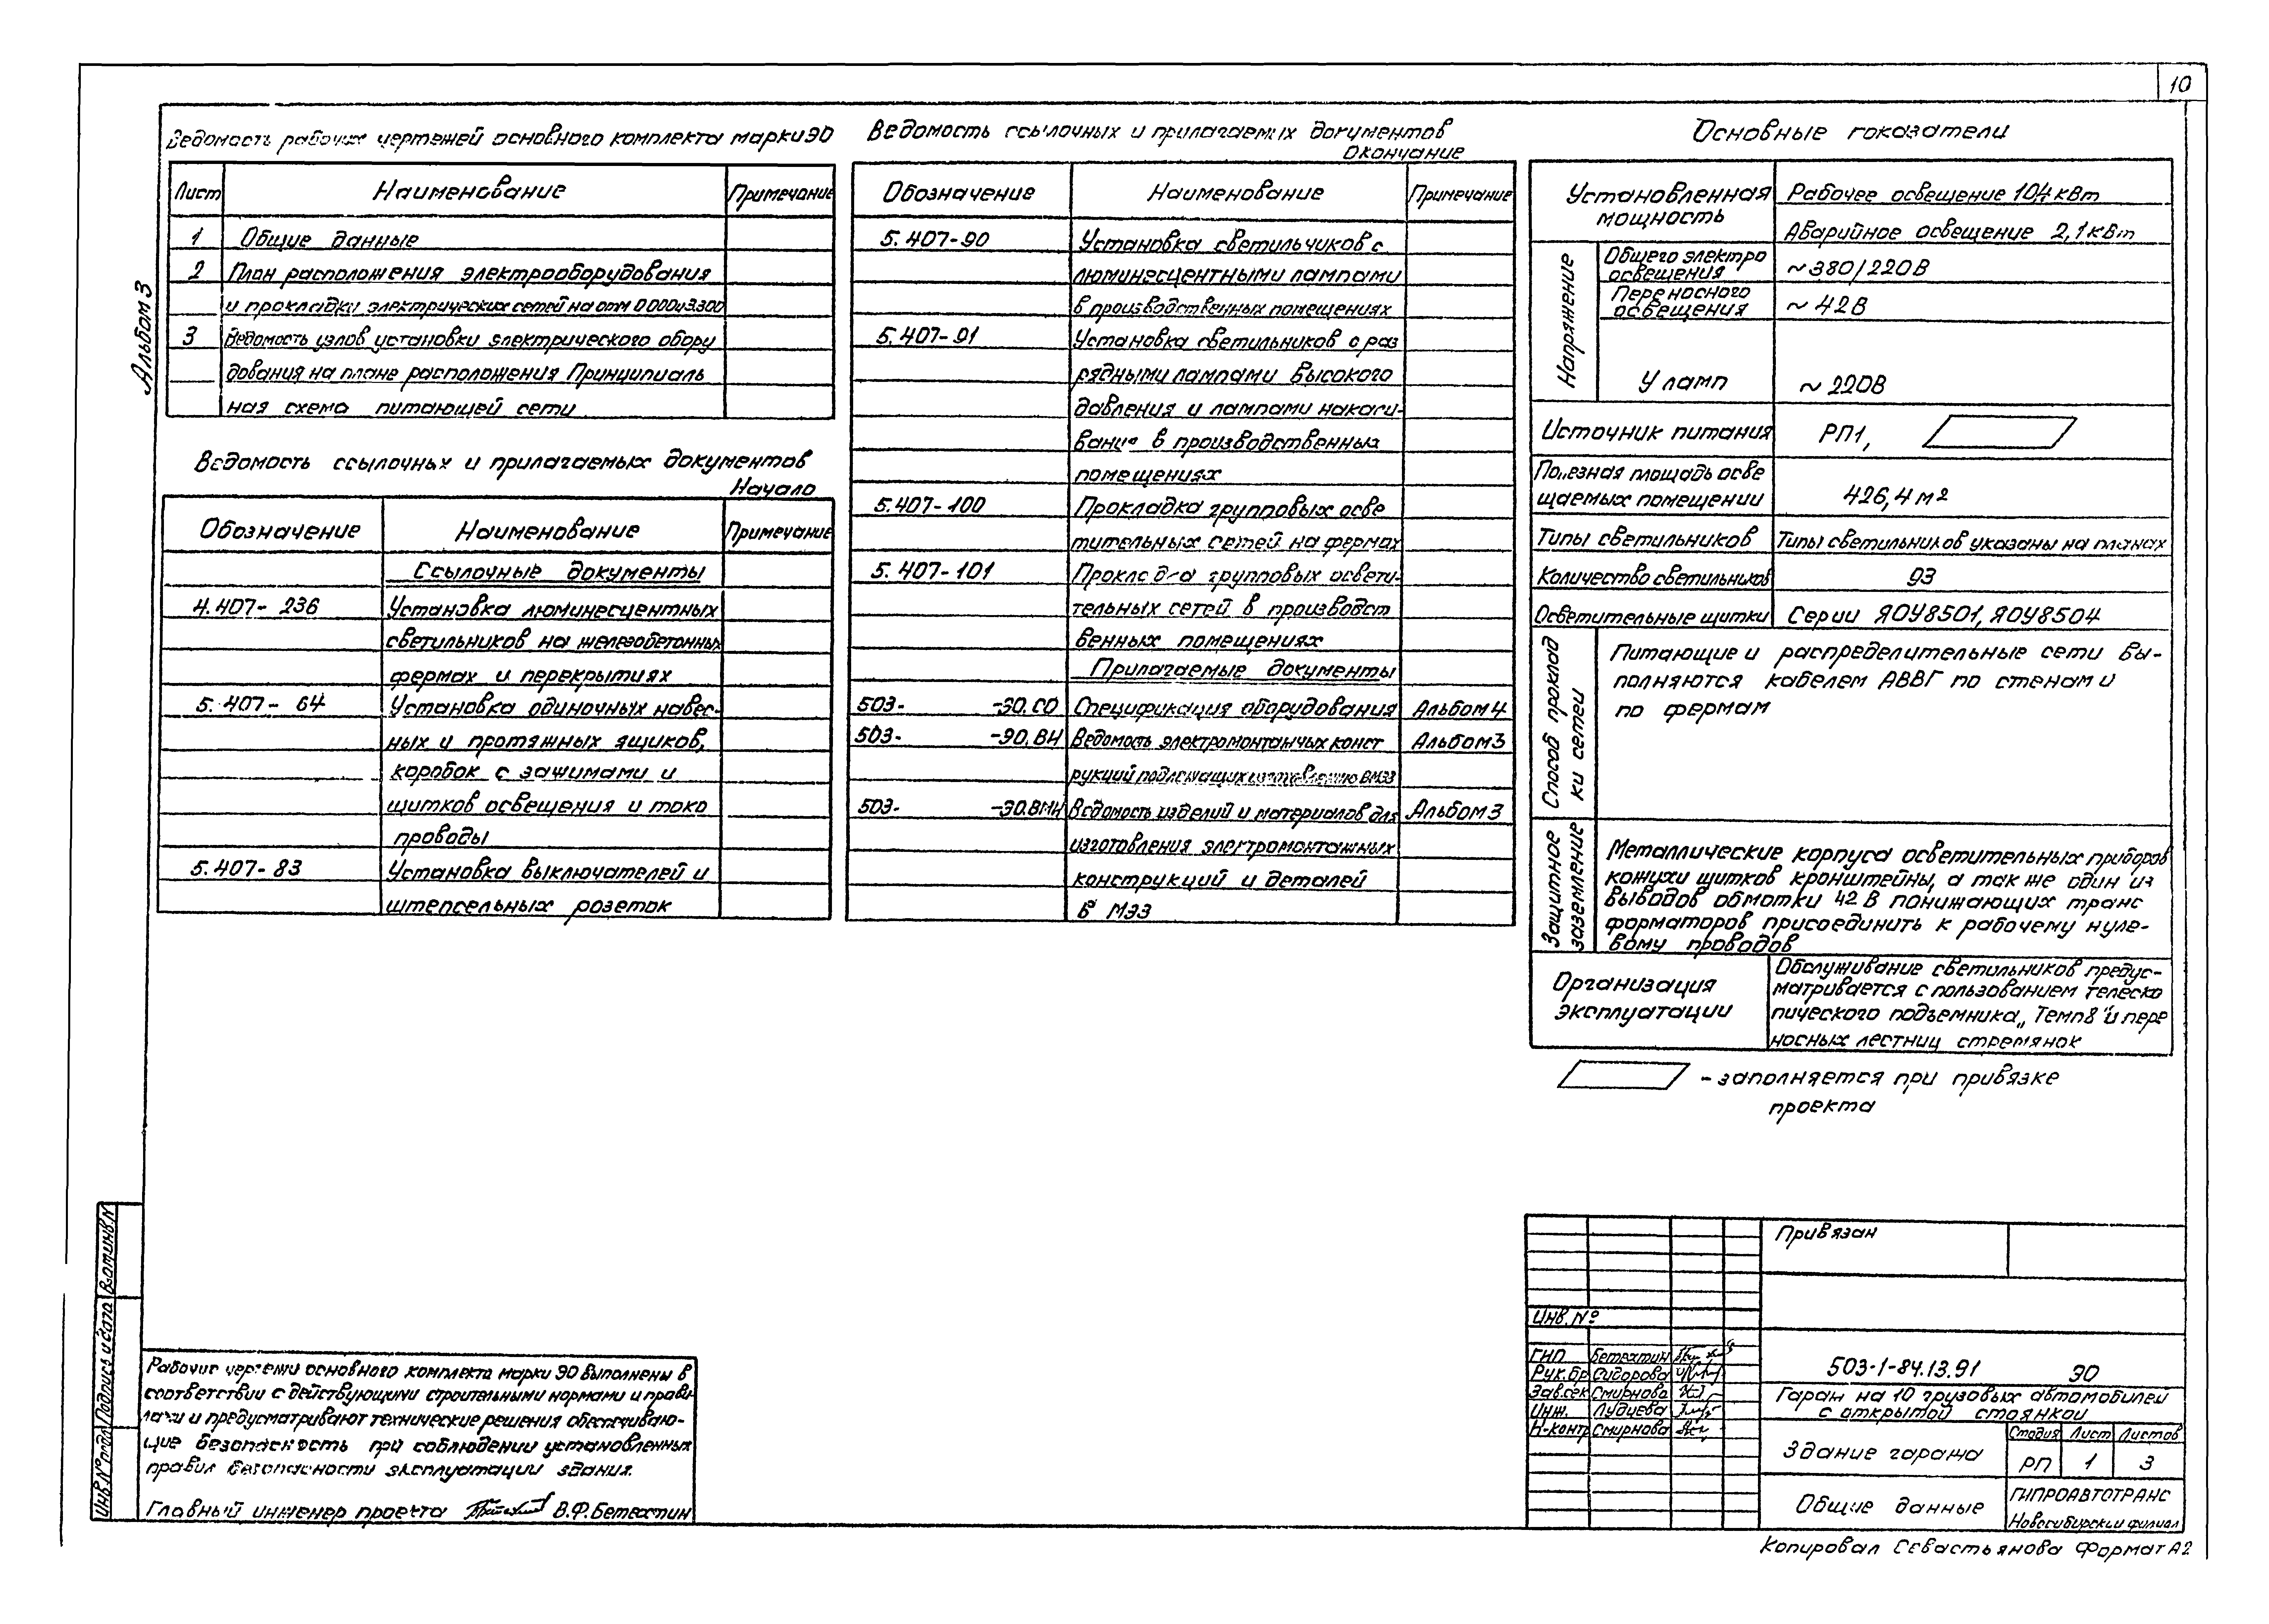 10
Альбом 3
Ведомость рабочих чертежей основного комплекта марки ЭО
Лист Наименование Примечание
1 Общие данные
2 План расположения электрооборудования
и прокладки электрических сетей на отм 0.000 и 3.300
3 Ведомость узлов установки электрического обору
дования на плане расположения Принципиаль
ная схема питающей сети
Ведомость ссылочных и прилагаемых документов
Начало
Обозначение Наименование Примечание
Ссылочные документы
4.407-236 Установка люминесцентных
светильников на железобетонных
фермах и перекрытиях
5.407-64 Установка одиночных навес-
ных и протяжных ящиков,
коробок с зажимами и
щитков освещения и токо
проводы
5.407-83 Установка выключателей и
штепсельных розеток
Ведомость ссылочных и прилагаемых документов
Окончание
Обозначение Наименование Примечание
5.407-90 Установка светильчиков с
люминесцентными лампами
в производственных помещениях
5.407-91 Установка светильников с раз
рядными лампами высокого
давления и лампами накали-
вания в производственных
помещениях
5.407-100 Прокладка групповых осве
тительных сетей на фермах
5.407-101 Прокладка групповых освети-
тельных сетей в производст
венных помещениях
Прилагаемые документы
503- -ЭО.СО Спецификация оборудования Альбом 4
503- -ЭО.ВИ Ведомость электромонтажных конст Альбом 3
рукций подлежащих изготовлению в МЭЗ
503- -ЭО.ВМИ Ведомость изделий и материалов для Альбом 3
изготовления электромонтажных
конструкций и деталей
в МЭЗ
Основные показатели
Установленная мощность Рабочее освещение 10,4 кВт
Аварийное освещение 2,1 кВт
Напряжение
Общего электро освещения ~380/220В
Переносного освещения ~42В
У ламп ~220В
Источник питания РП1,
Полезная площадь осве
щаемых помещении 426,4 м2
Типы светильников Типы светильников указаны на планах
Количество светильников 93
Осветительные щитки Серии ЯОУ8501, ЯОУ8504
Способ проклад
ки сетей
Питающие и распределительные сети вы-
полняются кабелем АВВГ по стенам и
по фермам
Защитное
заземление
Металлические корпуса осветительных приборов
кожухи щитков кронштейны, а так же один из
выводов обмотки 42 В понижающих транс
форматоров присоединить к рабочему нуле-
вому проводов
Организация
эксплуатации
Обслуживание светильников предус-
матривается с пользованием телеско
пического подъемника „Темп8" и пере
носных лестниц стремянок
- заполняется при привязке
проекта
Взам инв. N
Подпись и дата
Инв. № подл
Рабочие чертежи основного комплекта марки ЭО выполнены в
соответствии с действующими строительными нормами и прави-
лами и предусматривают технические решения обеспечиваю-
щие безопасность при соблюдении установленных
правил безопасности эксплуатации здания.
Главный инженер проекта В.Ф. Бетехтин
Привязан
Инв. №
ГИП Бетехтин
Рук.бр Сидорова
Зав.сек Смирнова
Инж.
Н-контр Смирнова
503-1-84.13.91 ЭО
Гараж на 10 грузовых автомобилей
с открытой стоянкой
Здание гаража
Стадия Лист Листов
РП 1 3
Общие данные
ГИПРОАВТОТРАНС
Новосибирский филиал
Копировал Севастьянова Формат А2